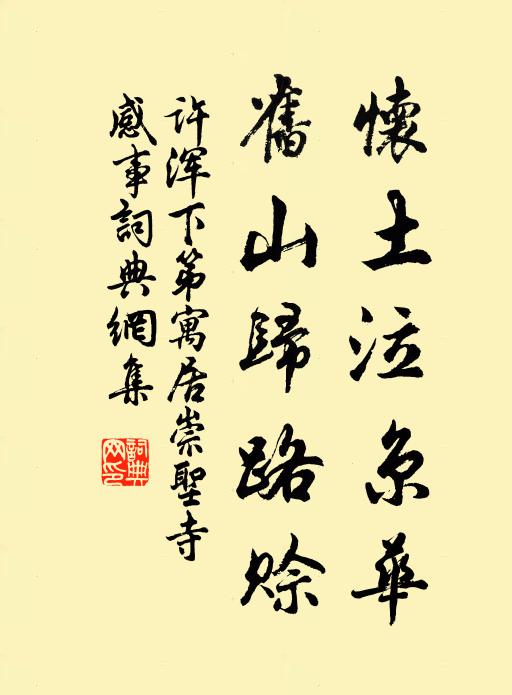 懷土泣京華
舊山歸路賒
许浑下第寓居崇聖寺
感事詞典網集
詞典網印